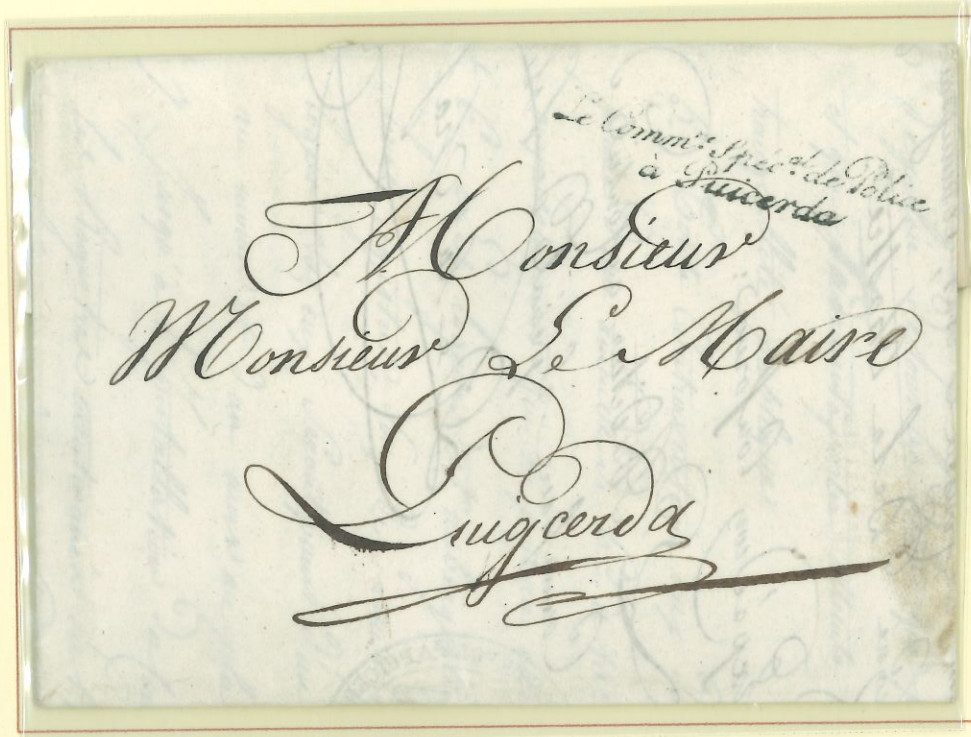 Le Comm.re Spéc.al de Police
à Puicerda
A Monsieur
Monsieur Le Maire
Puigcerda